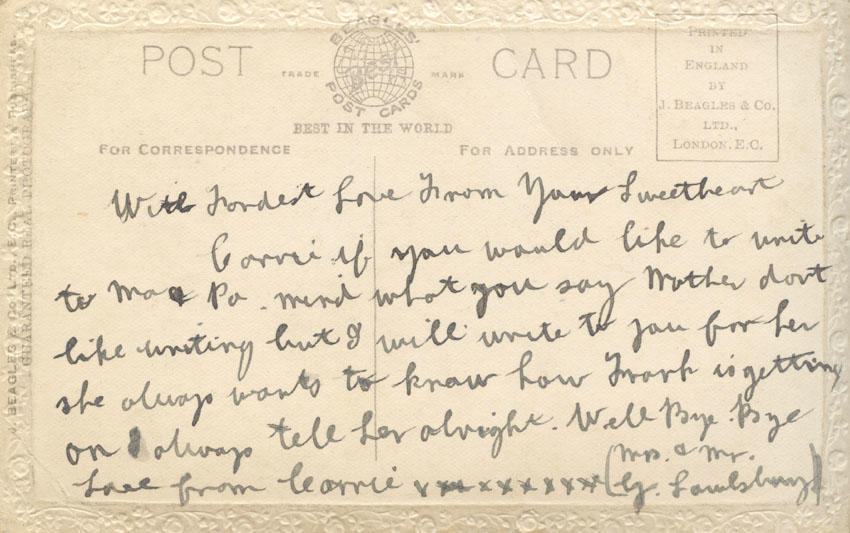 POST CARD
BEAGLES'
Best
POST CARDS
TRADE MARK
BEST IN THE WORLD
FOR CORRESPONDENCE
FOR ADDRESS ONLY
PRINTED
IN
ENGLAND
BY
J. BEAGLES & CO.
LTD.,
LONDON. E.C.
With Fondest Love From Your Sweetheart
Carrie if you would like to write
to Ma & Pa. mind what you say Mother dont
like writing but I will write to you for her
she always wants to know how Frank is getting
on I always tell her alright. Well Bye. Bye
Love from Carrie xxxxxxxxxx (Mrs. & Mr.
G. )
J. BEAGLES & CO., LTD., E.C. PRINTERS & PUBLISHERS.
GUARANTEED REAL PHOTOGRAPH